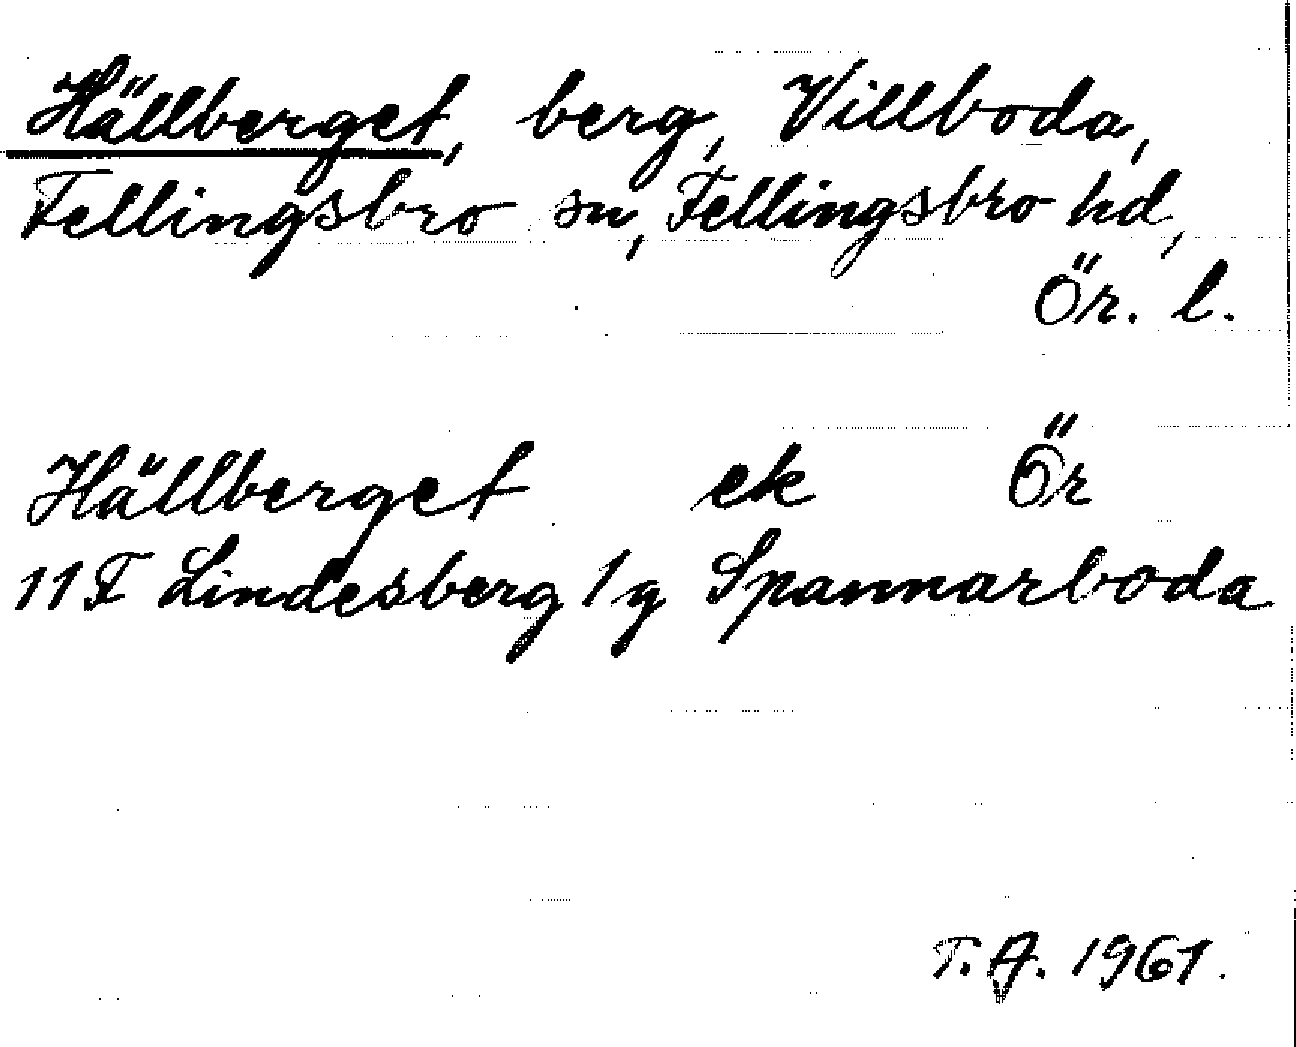 Hällberget, berg, Villboda,
Fellingsbro sn, Fellingsbro hd,
Ör. l.
Hällberget ek Ör
11F Lindesberg / g Spannarboda
T.A. 1961.